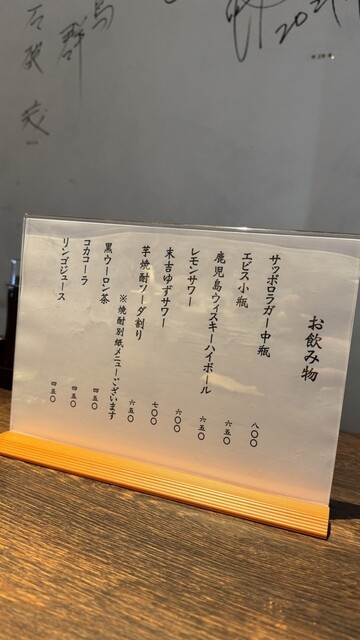 石破 茂
お飲み物
サッポロラガー中瓶 八〇〇
エビス小瓶 六五〇
鹿児島ウイスキーハイボール 六五〇
レモンサワー 六〇〇
末吉ゆずサワー 七〇〇
芋焼酎ソーダ割り 六五〇
※焼酎別紙メニューございます
黒ウーロン茶 四五〇
コカコーラ 四五〇
リンゴジュース 四五〇